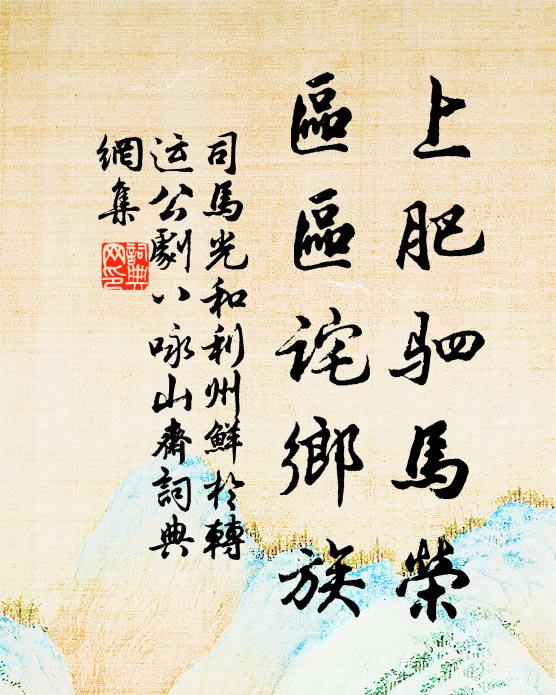 上肥駟馬榮
區區詫鄉族
司馬光和利州鮮於轉
运公劇八咏山齋詞典
網集
詞典網印